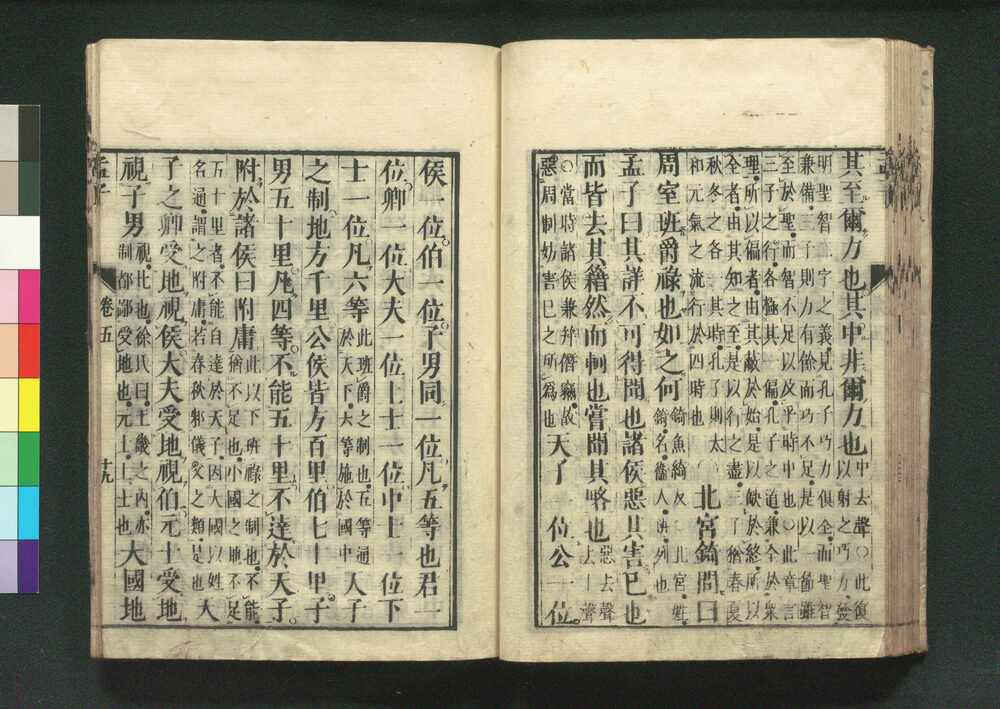 其至爾力也其中非爾力也中去聲○此復
以射之巧力發
明聖智二字之義見孔子巧力俱全而聖智
兼備三子則力有餘而巧不足是以一節雖
至於聖而智不足以及乎時中也○此章言
三子之行各極其一偏孔子之道兼全於衆
理所以偏者由其蔽於始是以缺於終所以
全者由其知之至是以行之盡三子猶春夏
秋冬之各一其時孔子則太
和元氣之流行於四時也
北宮錡問曰
周室班爵祿也如之何錡魚綺反○北宮姓
錡名衞人班列也
孟子曰其詳不可得聞也諸侯惡其害已也
而皆去其籍然而軻也嘗聞其略也惡去聲
去上聲
○當時諸侯兼并僭竊故
惡周制妨害已之所爲也
天子一位公一位
侯一位伯一位子男同一位凡五等也君一
位卿一位大夫一位上士一位中士一位下
士一位凡六等此班爵之制也五等通
於天下六等施於國中
天子
之制地方千里公侯皆方百里伯七十里子
男五十里凡四等不能五十里不達於天子
附於諸侯曰附庸此以下班祿之制也不能
猶不足也小國之地不足
五十里者不能自達於天子因大國以姓
名通謂之附庸若春秋邾儀父之類是也
天
子之卿受地視侯大夫受地視伯元士受地
視子男視比也徐氏曰王畿之內亦
制都鄙受地也元士上士也
大國地
孟子
卷五
十九